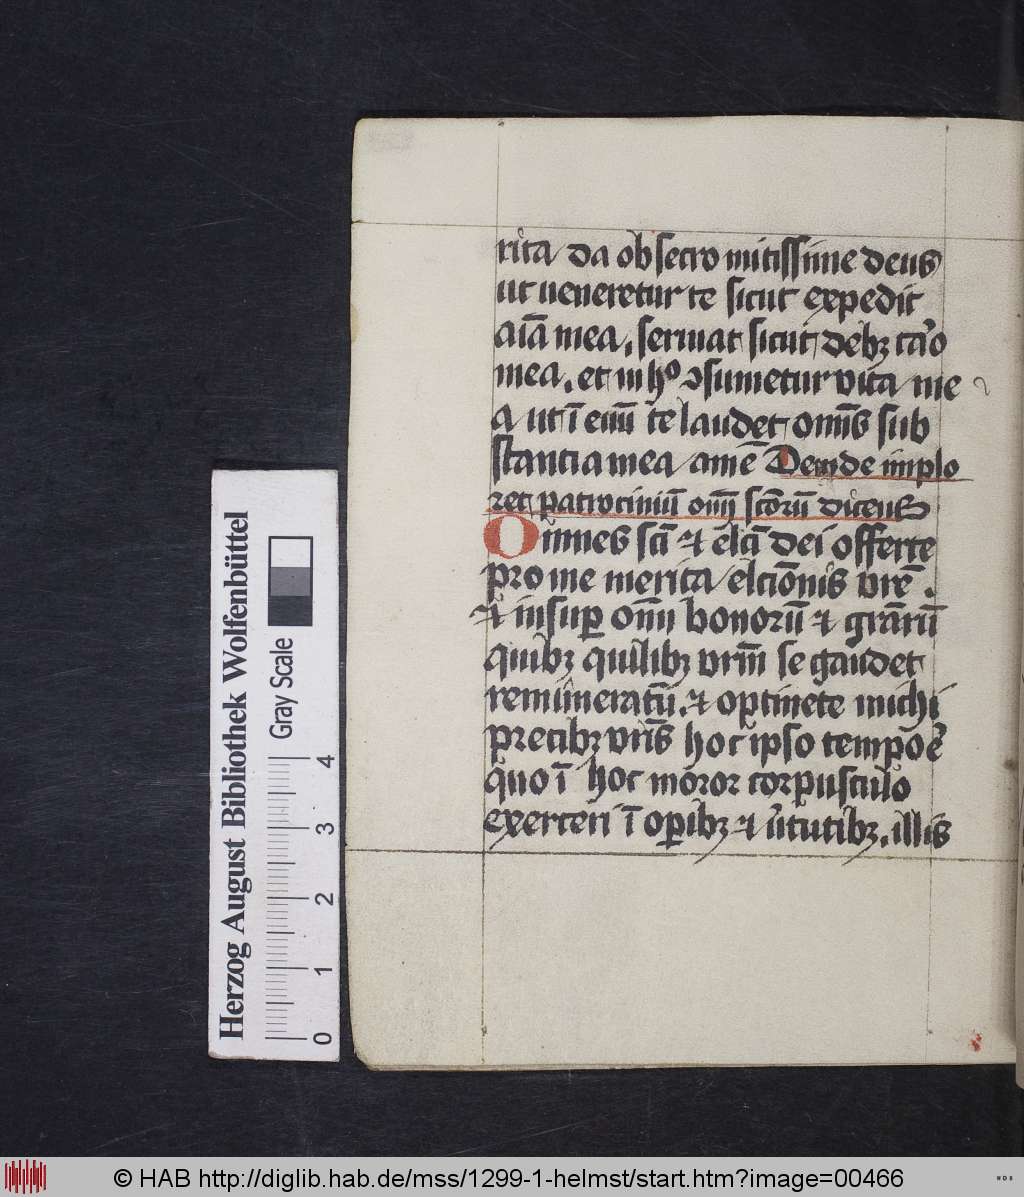 rita da obsecro mitissime deus
ut ueneretur te sicut expedit
aīa mea. seruiat sicut debꝫ caro
mea. et in h° ↄsumetur vita me
a ut ī euū te laudet omīs sub
stantia mea amē Deinde implo
ret patrociniū oīm sctōrū dicens
Omnes scī ⁊ elcī dei offerte
pro me merita elcionis vrē.
⁊ insuꝑ oīm bonorū ⁊ grārū
quibꝫ quilibꝫ vrm̄ se gaudet
remūneratū. ⁊ optinete michi
precibꝫ vrīs hoc ipso tempoē
quo ī hoc moror corpusculo
exerceri ī oꝑibꝫ ⁊ v̓tutibꝫ. illis
Herzog August Bibliothek Wolfenbüttel
Gray Scale
0 1 2 3 4
© HAB http://diglib.hab.de/mss/1299-1-helmst/start.htm?image=00466